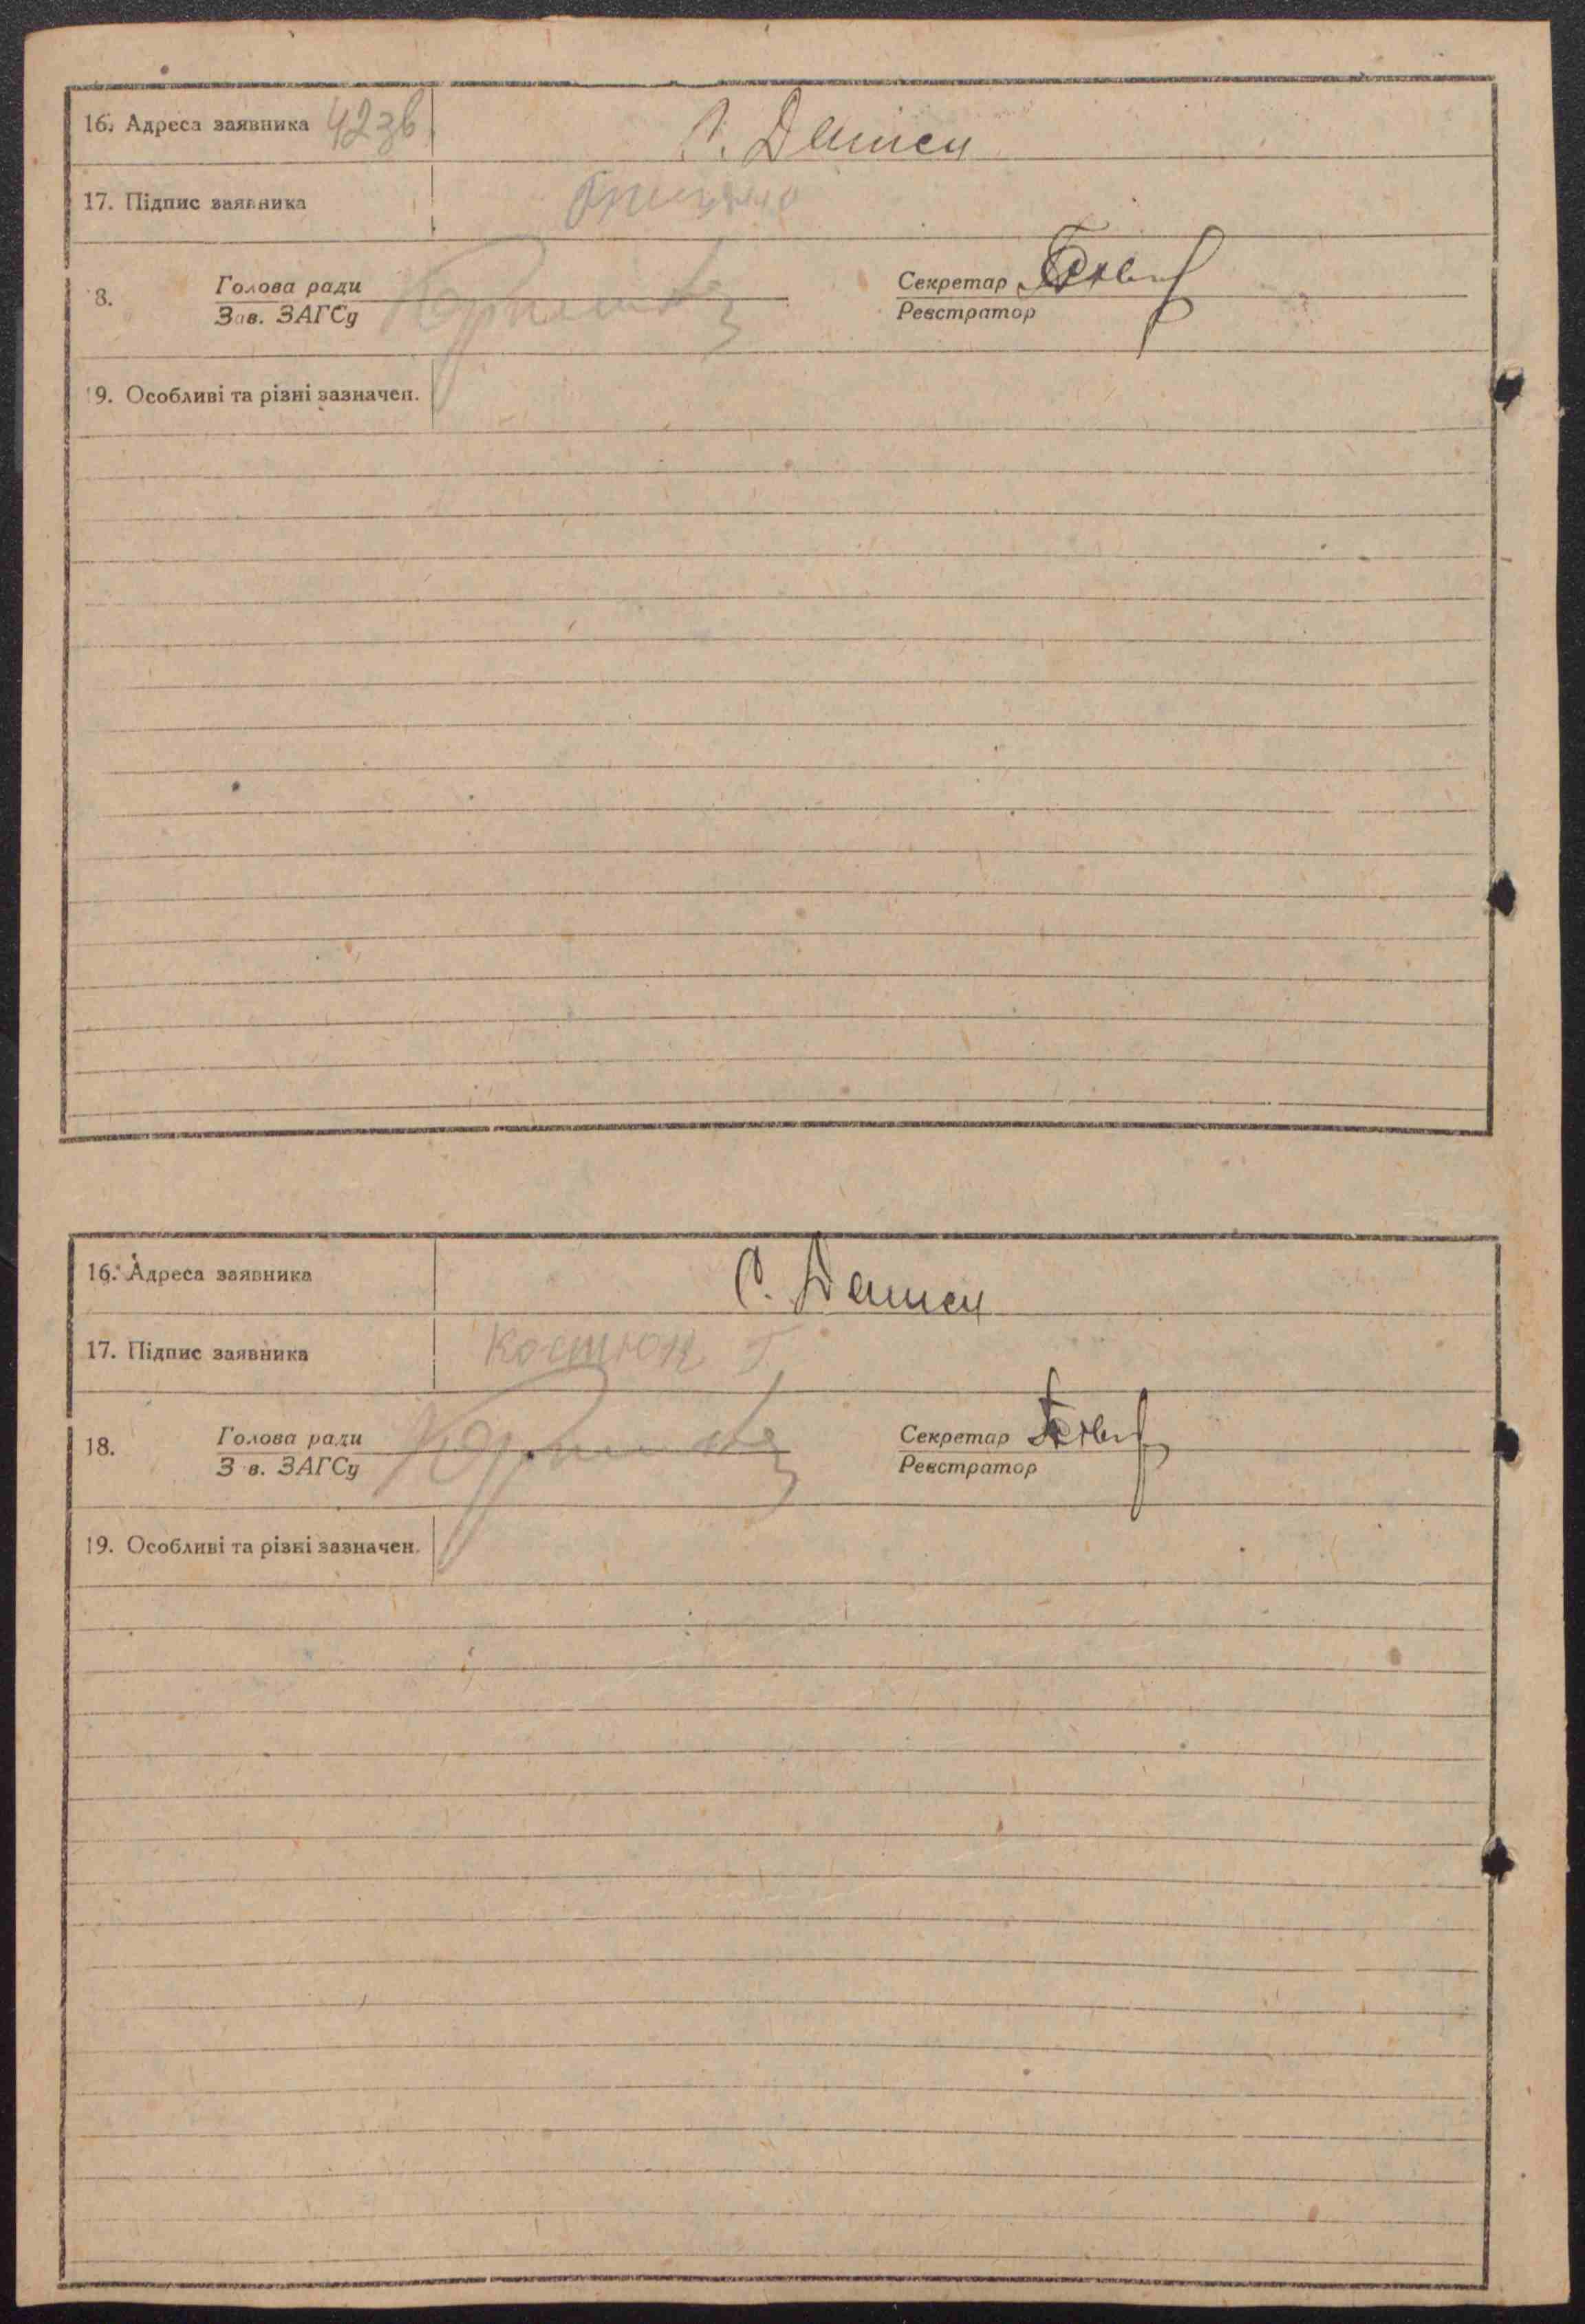 16. Адреса заявника 42зв
С. Дашев
17. Підпис заявника
8. Голова ради
Зав. ЗАГСу
Секретар
Реєстратор
19. Особливі та різні зазначен.
16. Адреса заявника
С. Дашев
17. Підпис заявника Костюк Г.
18. Голова ради
З в. ЗАГСу
Секретар
Реєстратор
19. Особливі та різні зазначен.